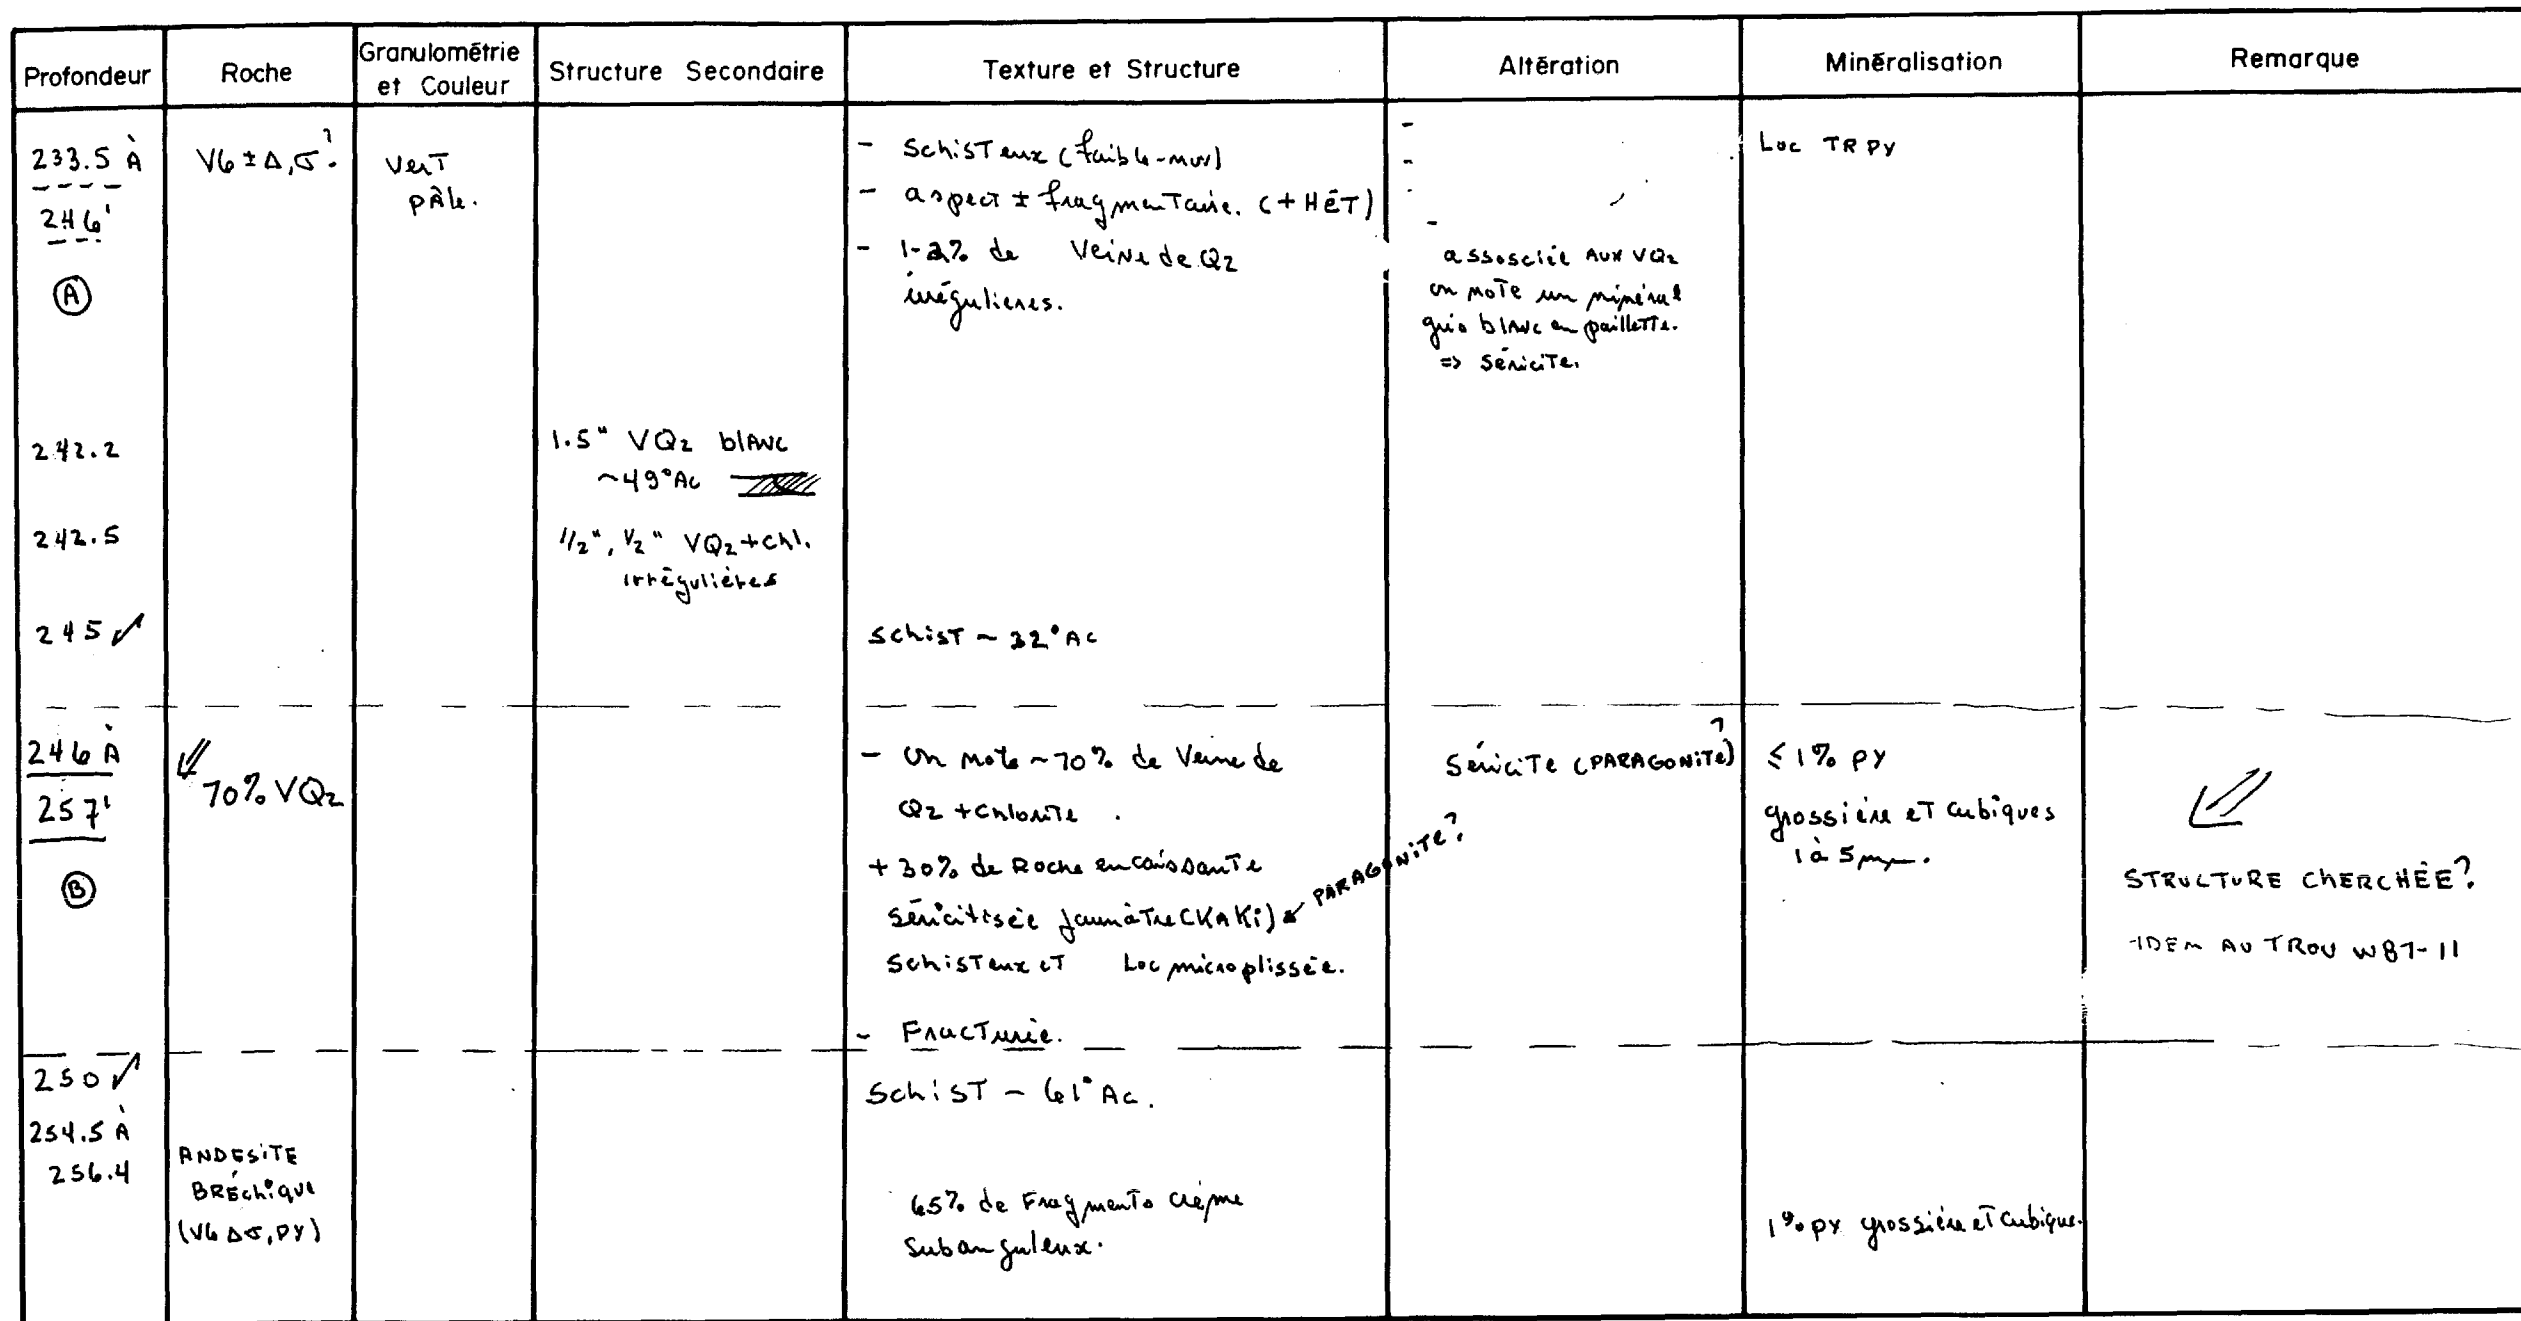 Profondeur Roche Granulométrie et Couleur Structure Secondaire Texture et Structure Altération Minéralisation Remarque
233.5 À
246'
A
V6 ± Δ, σ ?
VerT
pâle.
- SchisTeux (faible-moy)
- aspect ± fragmenTaire. (+ HÉT)
- 1-2% de Veine de Qz
irrégulieres.
-
-
-
-
assosciée AUX VQz
on noTe un minéral
gris blanc en paillette.
=> SériciTe.
Loc TR PY
242.2
1.5" VQz blANC
~49°Ac
242.5
1/2", 1/2" VQz + chl.
irrégulières
245 ✓
schisT ~ 32°Ac
246 À
257'
B
70% VQz
- On note ~70% de Veine de
Qz + Chlorite.
+ 30% de Roche encaissante
séricitisée jaunâTre (KAKi)
PARAGONiTe?
SchisTeux eT Loc microplissée.
- FracTurée.
SériciTe (PARAGONiTe) ?
≤ 1% PY
grossière eT cubiques
1 à 5 mm.
STRUCTURE CHERCHÉE?
-IDEM AU TROU W87-11
250 ✓
SchisT ~ 61°Ac.
254.5 À
256.4
ANDESiTE
BRÉchique
(V6 Δσ, PY)
65% de Fragments crème
Subanguleux.
1% PY grossière eT cubique.